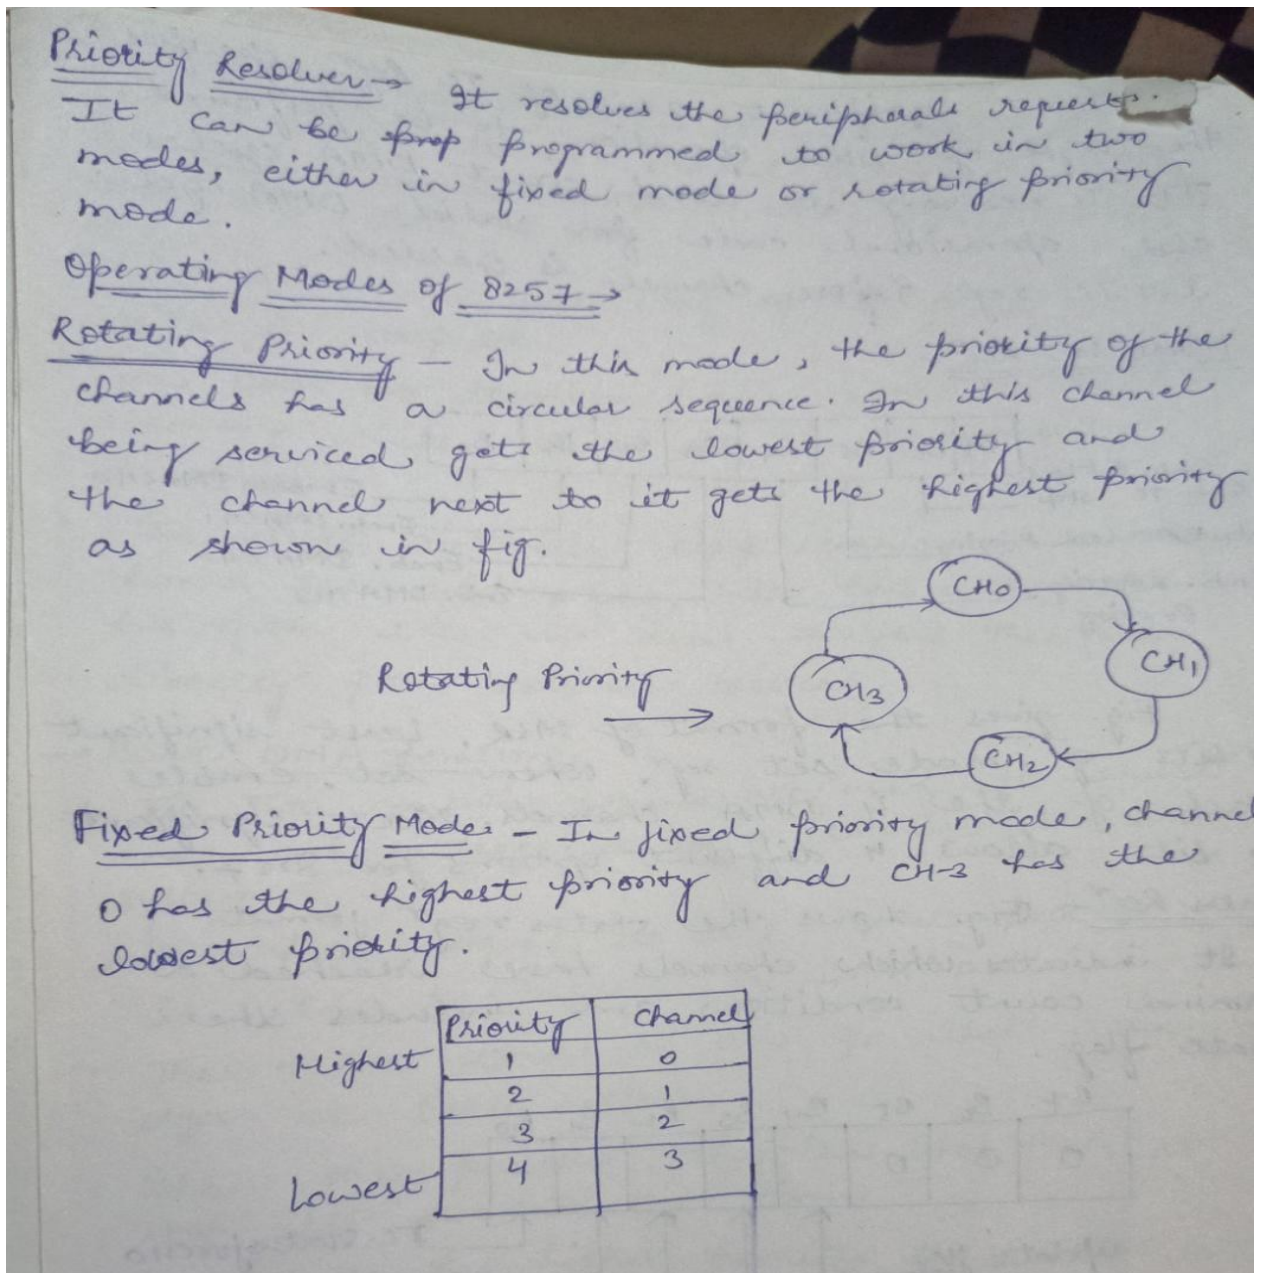 Priority Resolver → It resolves the peripherals requests.
It can be prop programmed to work in two
modes, either in fixed mode or rotating priority
mode.
Operating Modes of 8257 →
Rotating Priority - In this mode, the priority of the
channels has a circular sequence. In this channel
being serviced gets the lowest priority and
the channel next to it gets the highest priority
as shown in fig.
CH0
CH1
Rotating Priority →
CH3
CH2
Fixed Priority Mode - In fixed priority mode, channel
0 has the highest priority and CH-3 has the
lowest priority.
Priority Channel
Highest 1 0
2 1
3 2
Lowest 4 3